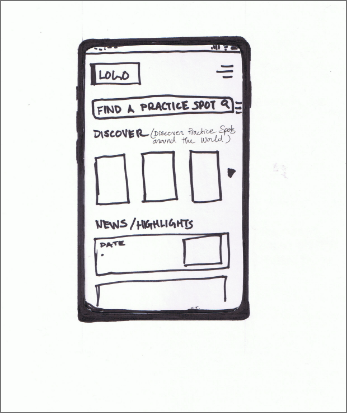 LOGO
FIND A PRACTICE SPOT
DISCOVER (Discover Practice Spots
around the World)
NEWS/HIGHLIGHTS
DATE